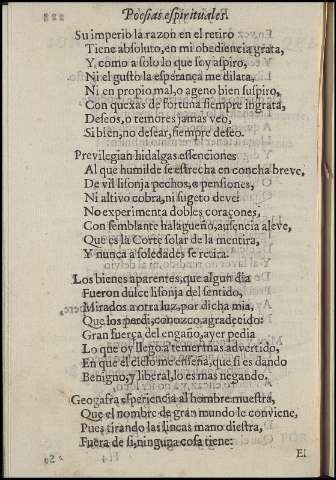 Poesias espirituales.
Su imperio la razon en el retiro
Tiene absoluto, en mi obediencia grata,
Y, como a solo lo que soy aspiro,
Ni el gusto la esperança me dilata,
Ni en propio mal, o ageno bien suspiro,
Con quexas de fortuna siempre ingrata,
Deseos, o temores jamas veo,
Si bien, no desear, siempre deseo.
Previlegian hidalgas essenciones
Al que humilde se estrecha en concha breve,
De vil lisonja pechos, o pensiones,
Ni altivo cobra, ni sugeto deve:
No experimenta dobles coraçones,
Con semblante halagueño, ausencia aleve,
Que es la Corte solar de la mentira,
Y nunca a soledades se retira.
Los bienes aparentes, que algun dia
Fueron dulce lisonja del sentido,
Mirados a otra luz, por dicha mia,
Que los perdi, conozco agradecido:
Gran fuerça del engaño, ayer pedia
Lo que oy llego a temer mas advertido,
En que el cielo me enseña, que si es dando
Benigno, y liberal, lo es mas negando.
Geografa esperiencia al hombre muestra,
Que el nombre de gran mundo le conviene,
Pues tirando las lineas mano diestra,
Fuera de si, ninguna cosa tiene:
El